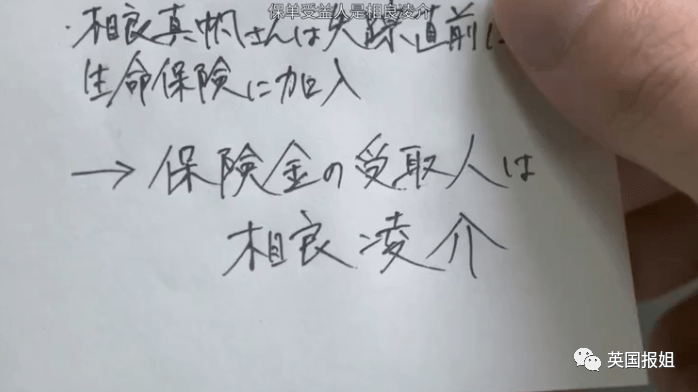 保单受益人是相良凌介
・相良真帆さんは失踪直前に
生命保険に加入
→保険金の受取人は
相良凌介
英国报姐